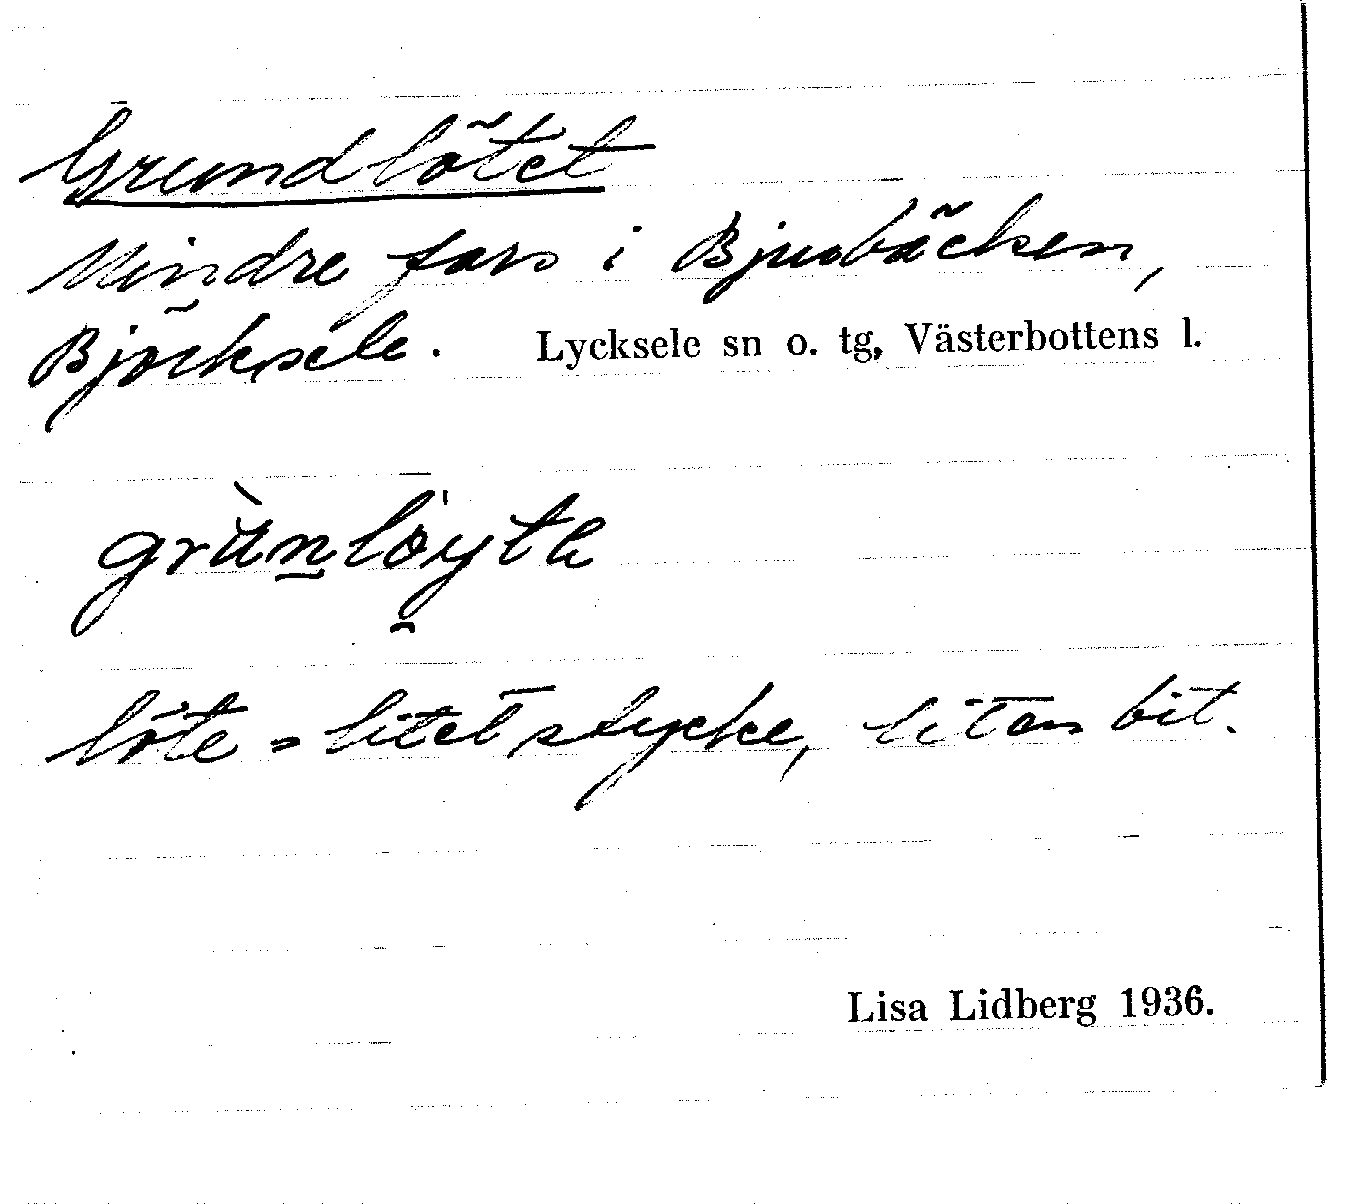 Grundlötet
Mindre fors i Bjurbäcken,
Björksele. Lycksele sn o. tg, Västerbottens l.
löte = litet stycke, liten bit.
Lisa Lidberg 1936.